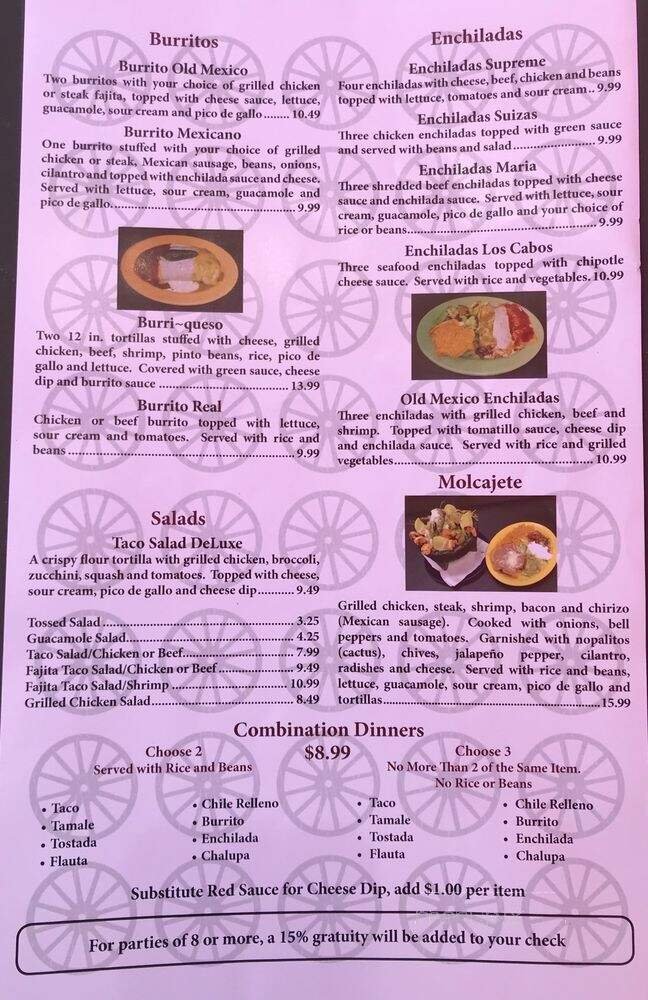 Burritos
Burrito Old Mexico
Two burritos with your choice of grilled chicken
or steak fajita, topped with cheese sauce, lettuce,
guacamole, sour cream and pico de gallo........ 10.49
Burrito Mexicano
One burrito stuffed with your choice of grilled
chicken or steak, Mexican sausage, beans, onions,
cilantro and topped with enchilada sauce and cheese.
Served with lettuce, sour cream, guacamole and
pico de gallo................................................ 9.99
Burri~queso
Two 12 in. tortillas stuffed with cheese, grilled
chicken, beef, shrimp, pinto beans, rice, pico de
gallo and lettuce. Covered with green sauce, cheese
dip and burrito sauce .................................. 13.99
Burrito Real
Chicken or beef burrito topped with lettuce,
sour cream and tomatoes. Served with rice and
beans........................................................... 9.99
Salads
Taco Salad DeLuxe
A crispy flour tortilla with grilled chicken, broccoli,
zucchini, squash and tomatoes. Topped with cheese,
sour cream, pico de gallo and cheese dip........... 9.49
Tossed Salad ................................................ 3.25
Guacamole Salad........................................... 4.25
Taco Salad/Chicken or Beef............................ 7.99
Fajita Taco Salad/Chicken or Beef ................... 9.49
Fajita Taco Salad/Shrimp ............................. 10.99
Grilled Chicken Salad.................................... 8.49
Enchiladas
Enchiladas Supreme
Four enchiladas with cheese, beef, chicken and beans
topped with lettuce, tomatoes and sour cream.. 9.99
Enchiladas Suizas
Three chicken enchiladas topped with green sauce
and served with beans and salad..................... 9.99
Enchiladas Maria
Three shredded beef enchiladas topped with cheese
sauce and enchilada sauce. Served with lettuce, sour
cream, guacamole, pico de gallo and your choice of
rice or beans................................................. 9.99
Enchiladas Los Cabos
Three seafood enchiladas topped with chipotle
cheese sauce. Served with rice and vegetables. 10.99
Old Mexico Enchiladas
Three enchiladas with grilled chicken, beef and
shrimp. Topped with tomatillo sauce, cheese dip
and enchilada sauce. Served with rice and grilled
vegetables.................................................... 10.99
Molcajete
Grilled chicken, steak, shrimp, bacon and chirizo
(Mexican sausage). Cooked with onions, bell
peppers and tomatoes. Garnished with nopalitos
(cactus), chives, jalapeño pepper, cilantro,
radishes and cheese. Served with rice and beans,
lettuce, guacamole, sour cream, pico de gallo and
tortillas........................................................15.99
Combination Dinners
$8.99
Choose 2
Served with Rice and Beans
• Taco
• Tamale
• Tostada
• Flauta
• Chile Relleno
• Burrito
• Enchilada
• Chalupa
Choose 3
No More Than 2 of the Same Item.
No Rice or Beans
• Taco
• Tamale
• Tostada
• Flauta
• Chile Relleno
• Burrito
• Enchilada
• Chalupa
Substitute Red Sauce for Cheese Dip, add $1.00 per item
For parties of 8 or more, a 15% gratuity will be added to your check